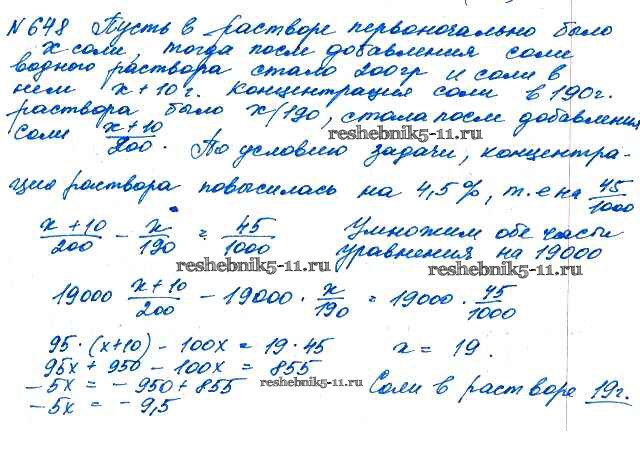 №648 Пусть в растворе первоначально было
x соли, тогда после добавления соли
водного раствора стало 200гр и соли в
нем x+10г. Концентрация соли в 190г.
раствора было x/190, стала после добавления
соли (x+10)/200. По условию задачи, концентра-
reshebnik5-11.ru
ция раствора повысилась на 4,5%, т.е на 45/1000
(x+10)/200 - x/190 = 45/1000 Умножим обе части
уравнения на 19000
reshebnik5-11.ru reshebnik5-11.ru
19000 (x+10)/200 - 19000 · x/190 = 19000 · 45/1000
95·(x+10) - 100x = 19·45 x = 19.
95x + 950 - 100x = 855
-5x = -950+855 reshebnik5-11.ru Соли в растворе 19г.
-5x = -9,5